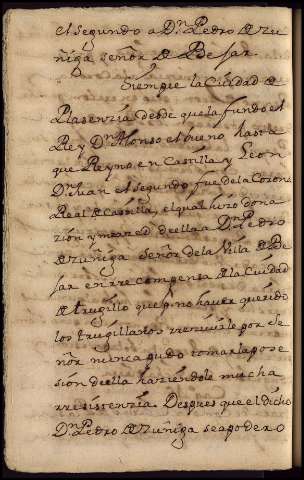 el segundo a Dn Pedro de Zu
ñiga señor de Besar
Siempre la Ciudad de
Plasenzia desde que la fundo el
Rey Dn Alonso el bueno hasta
que Reyno en Castilla y Leon
Dn Juan el segundo fue de la Corona
Real de Castilla, el qual hizo dona
zión y merzed de ella a Dn Pedro
de Zuñiga Señor de la Villa de Be
sar en rrecompensa de la Ciudad
de trugillo que p. no haver querido
los trugillanos rrezivirle por Se
ñor nunca pudo tomar la pose
sion de ella haziendole mucha
rresistenzia. Despues que el dicho
Dn Pedro de Zuñiga se apodero